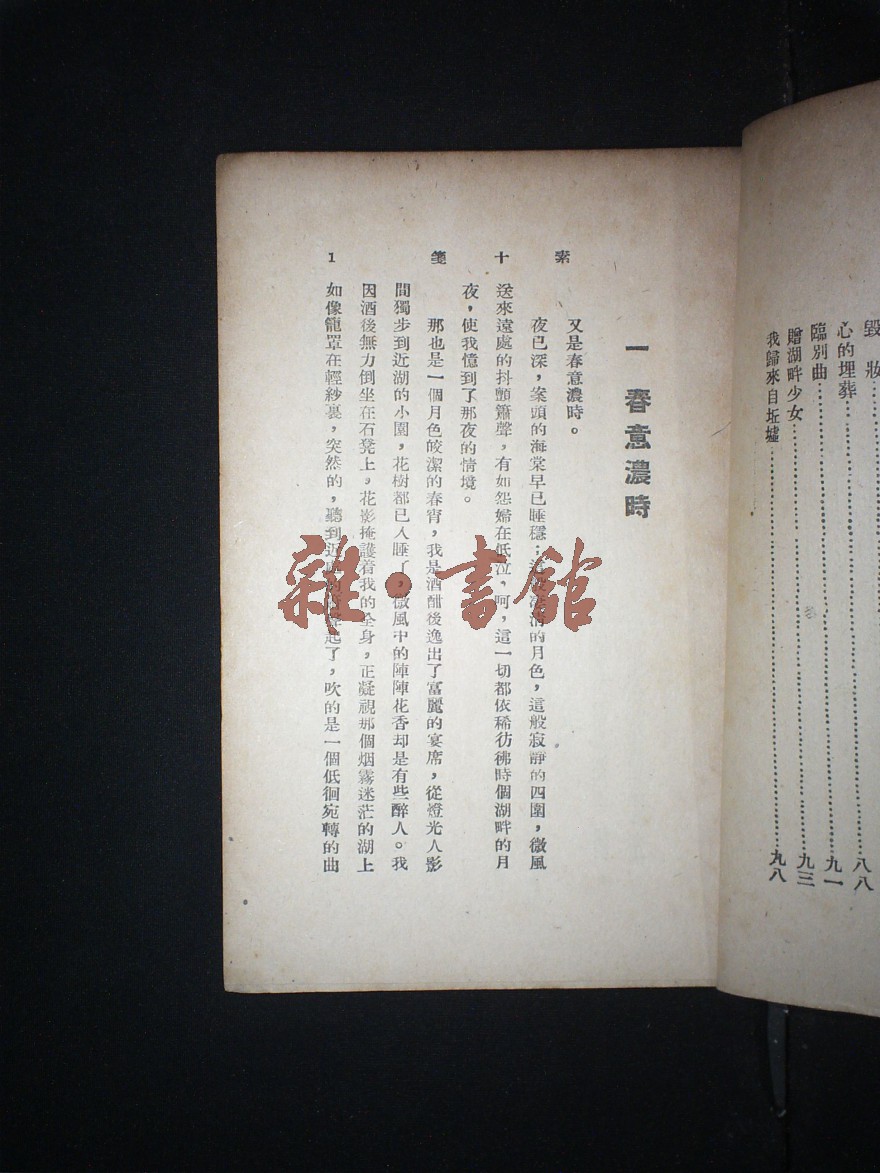 毀　妝……
心的埋葬……八八
臨別曲……九一
贈湖畔少女……九三
我歸來自坵墟……九八
素十箋
1
一　春意濃時
又是春意濃時。
夜已深，案頭的海棠早已睡穩；的月色，這般寂靜的四圍，微風
送來遠處的抖顫簫聲，有如怨婦在低泣，呵，這一切都依稀彷彿時個湖畔的月
夜，使我憶到了那夜的情境。
那也是一個月色皎潔的春宵，我是酒酣後逸出了富麗的宴席，從燈光人影
間獨步到近湖的小園，花樹都已入睡了，微風中的陣陣花香却是有些醉人。我
因酒後無力倒坐在石凳上，花影掩護着我的全身，正凝視那個烟霧迷茫的湖上
如像籠罩在輕紗裏，突然的，聽到近起了，吹的是一個低徊宛轉的曲
雜·書館